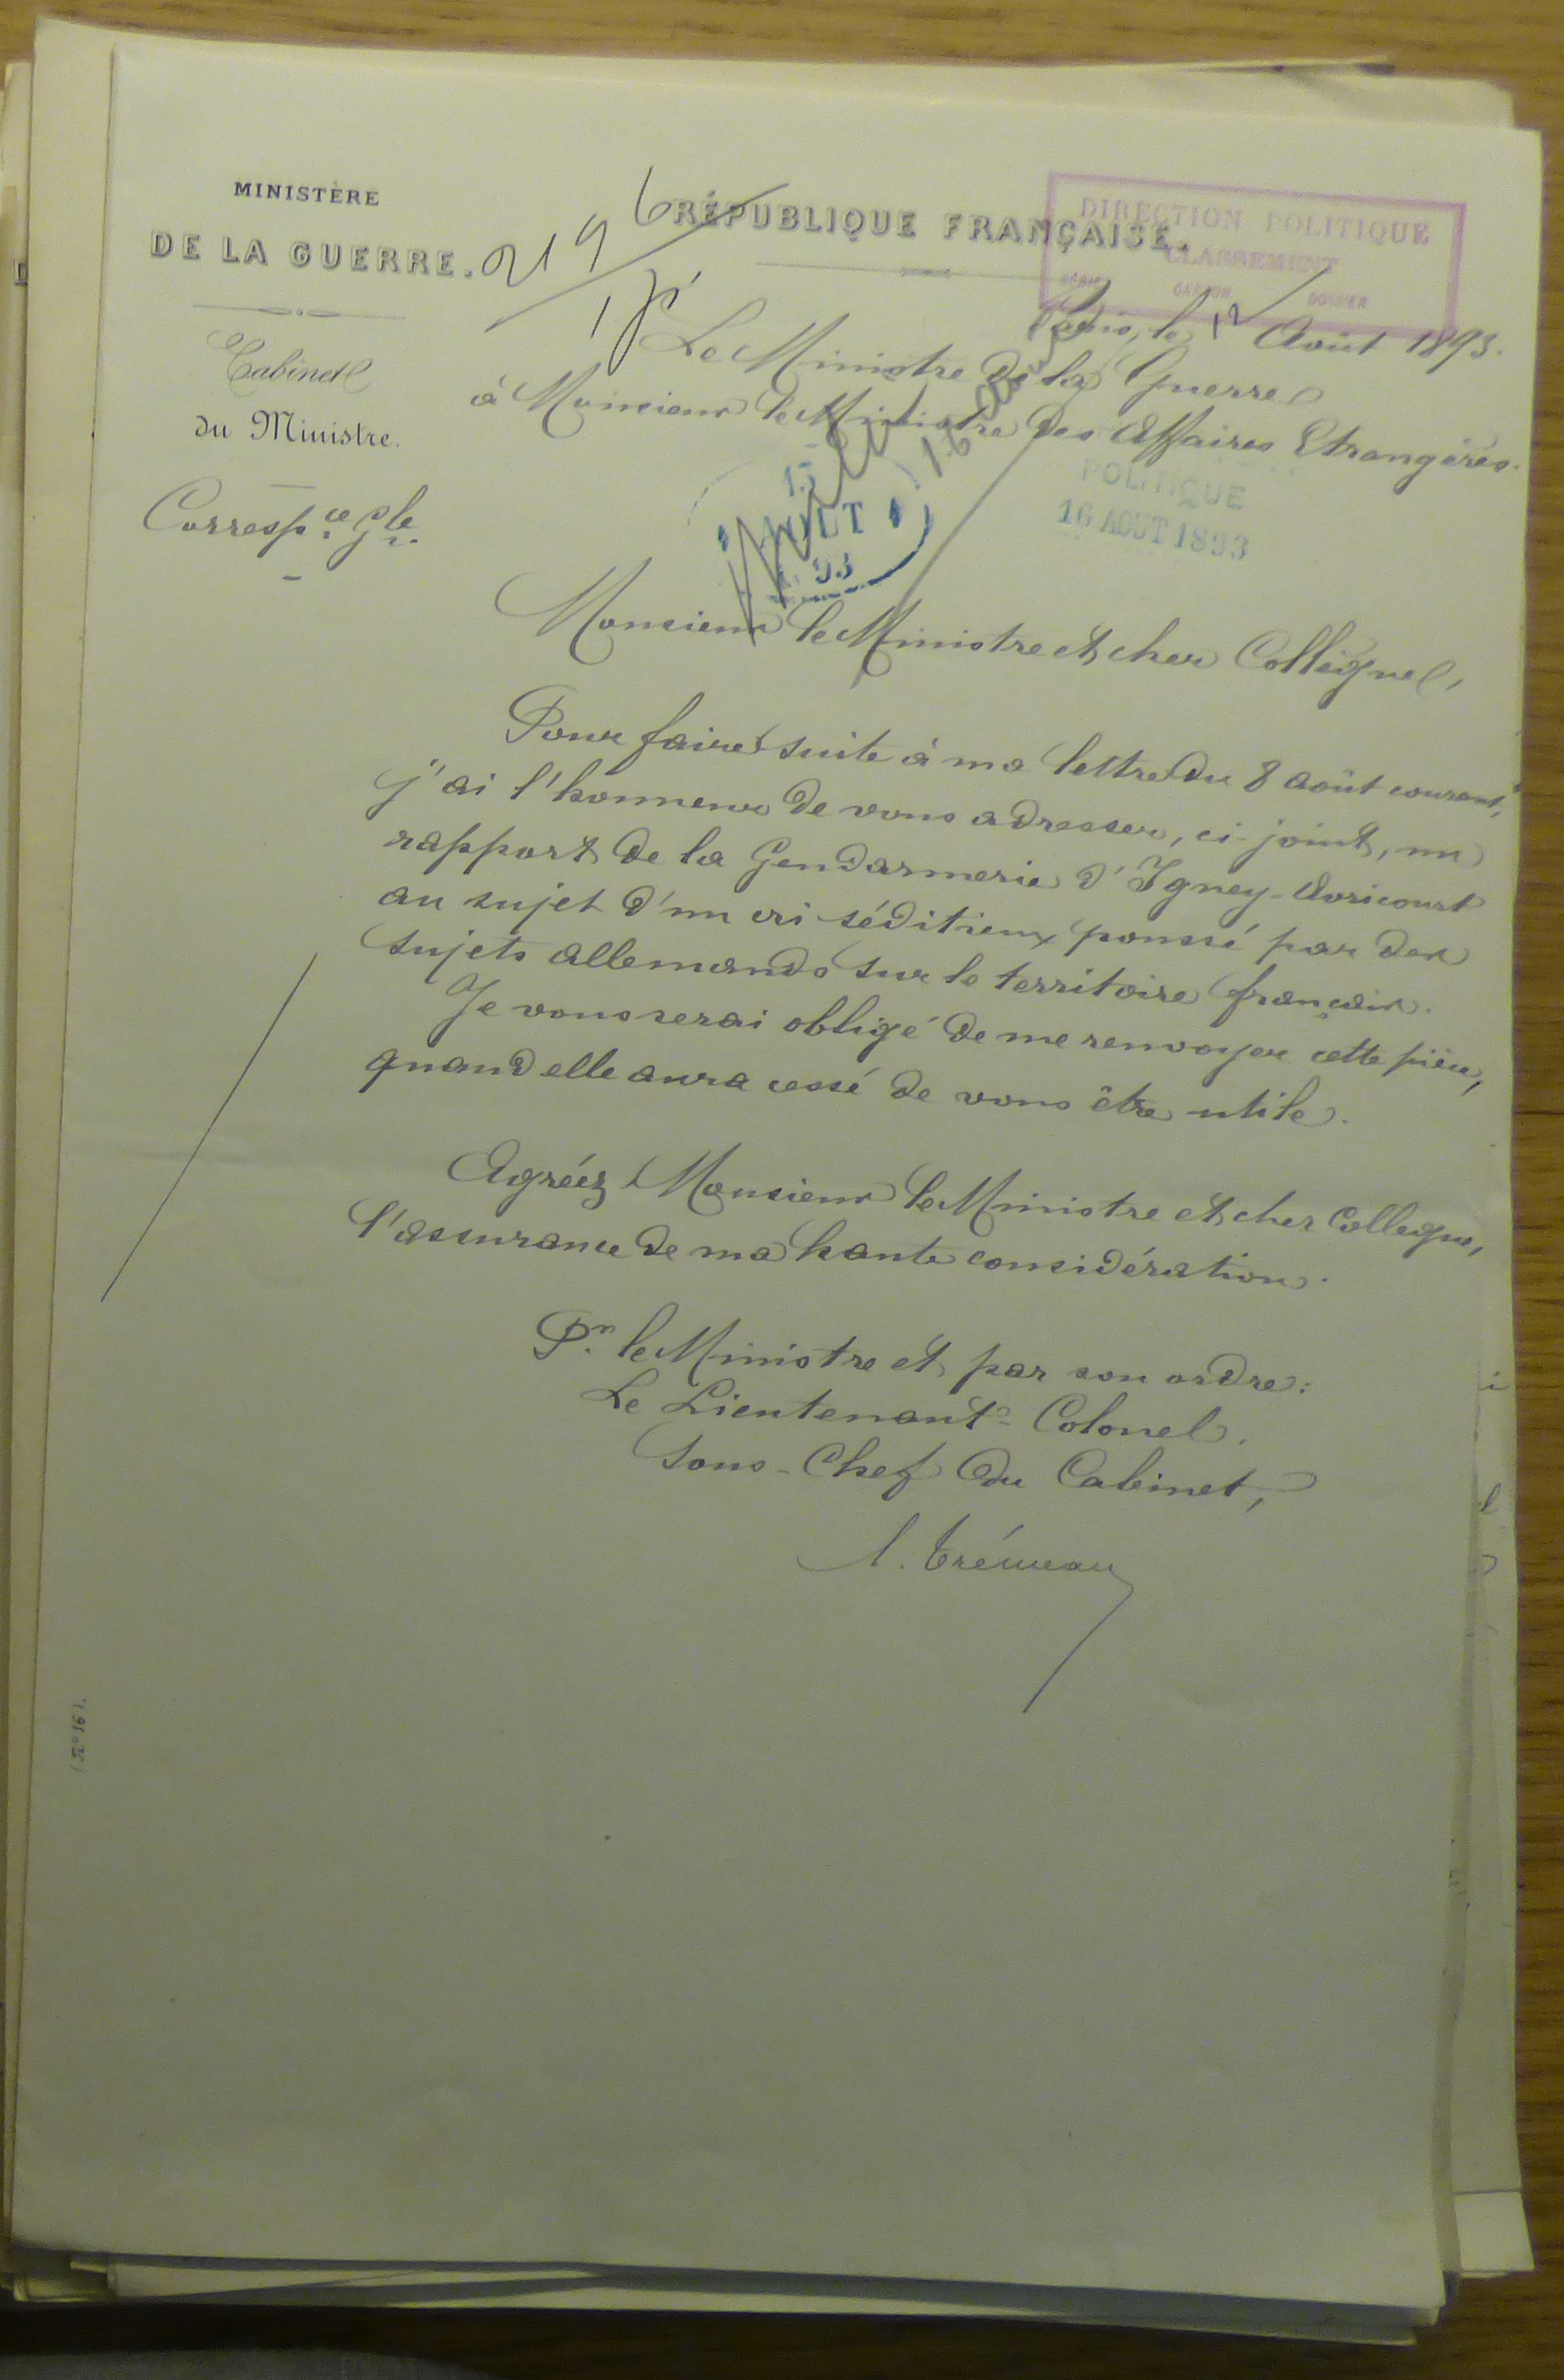 MINISTÈRE
DE LA GUERRE.
Cabinet
du Ministre.
Corresp.ce Gle
RÉPUBLIQUE FRANÇAISE.
DIRECTION POLITIQUE
CLASSEMENT
SÉRIE CARTON DOSSIER
219
Paris, le 12 Août 1893.
Le Ministre de la Guerre
à Monsieur le Ministre des Affaires Etrangères.
15
AOUT
93
16 Aout
POLITIQUE
16 AOUT 1893
Monsieur le Ministre et cher Collègue,
Pour faire suite à ma lettre du 8 août courant,
j'ai l'honneur de vous adresser, ci-joint, un
rapport de la Gendarmerie d'Igney-Avricourt
au sujet d'un cri séditieux poussé par des
sujets allemands sur le territoire français.
Je vous serai obligé de me renvoyer cette pièce,
quand elle aura cessé de vous être utile.
Agréez Monsieur le Ministre et cher Collegue,
l'assurance de ma haute considération.
Pr. le Ministre et par son ordre:
Le Lieutenant-Colonel.
Sous-Chef du Cabinet,
A. Trémeau
(No 16).